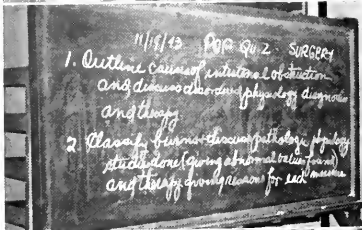 11/15/43 POP QUIZ - SURGERY
1. Outline causes of intestinal obstruction
and discuss disordered physiology, diagnosis
and therapy.
2. Classify burns & discuss pathologic physiology
studies done (giving abnormal values found)
and therapy giving reasons for each measure